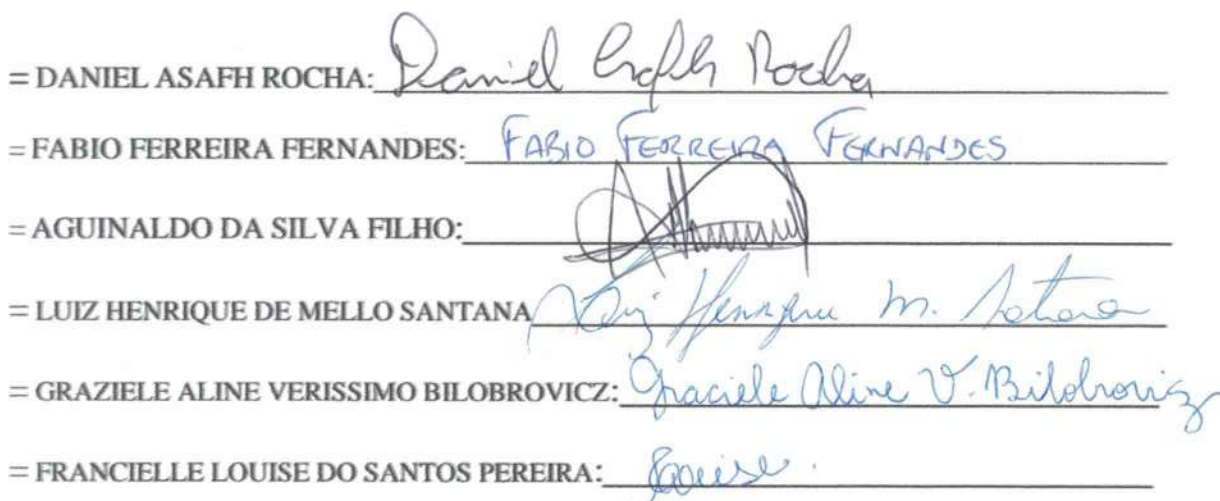 = DANIEL ASAFH ROCHA: Daniel Asafh Rocha
= FABIO FERREIRA FERNANDES: FABIO FERREIRA FERNANDES
= AGUINALDO DA SILVA FILHO:
= LUIZ HENRIQUE DE MELLO SANTANA Luiz Henrique M. Santana
= GRAZIELE ALINE VERISSIMO BILOBROVICZ: Graciele Aline V. Bilobrovicz
= FRANCIELLE LOUISE DO SANTOS PEREIRA: Louise.